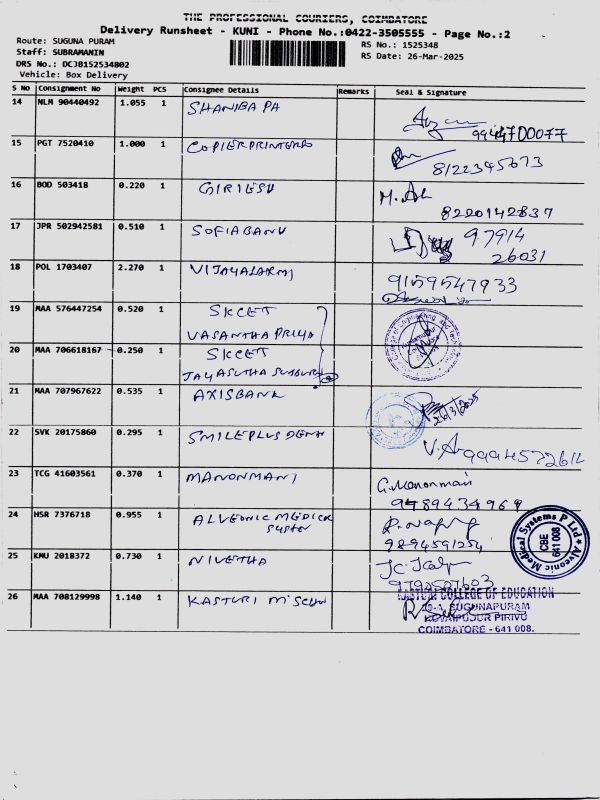 THE PROFESSIONAL COURIERS, COIMBATORE
Delivery Runsheet - KUNI - Phone No.:0422-3505555 - Page No.:2
Route: SUGUNA PURAM RS No.: 1525348
Staff: SUBRAMANIN RS Date: 26-Mar-2025
DRS No.: DCJB152534802
Vehicle: Box Delivery
S No Consignment No Weight PCS Consignee Details Remarks Seal & Signature
14 NLM 90440492 1.055 1 SHANIBA PA
9944700077
15 PGT 7520410 1.000 1 COPIERPRINTERS
8122345673
16 BOD 503418 0.220 1 GIRILESH
8220142837
17 JPR 502942581 0.510 1 SOFIABANU 97914
26031
18 POL 1703407 2.270 1 VIJAYALAXMI 9159547933
19 MAA 576447254 0.520 1 SKCET
VASANTHA PRIYA
20 MAA 706618167 0.250 1 SKCET
21 MAA 707967622 0.535 1 AXISBANK
26/3/2025
22 SVK 20175860 0.295 1 SMILEPLUS DENT
V.A 9994572612
23 TCG 41603561 0.370 1 MANONMANI G. Manonmani
9489434969
24 HSR 7376718 0.955 1 ALVEONIC MEDICK
9894591254
Alveonic Medical Systems P Ltd
CBE
641 008
25 KMU 2018372 0.730 1 NIVETHA
26 MAA 708129998 1.140 1 KASTURI
KASTURI COLLEGE OF EDUCATION
SUGUNAPURAM
KOVAIPUDUR PIRIVU
COIMBATORE - 641 008.